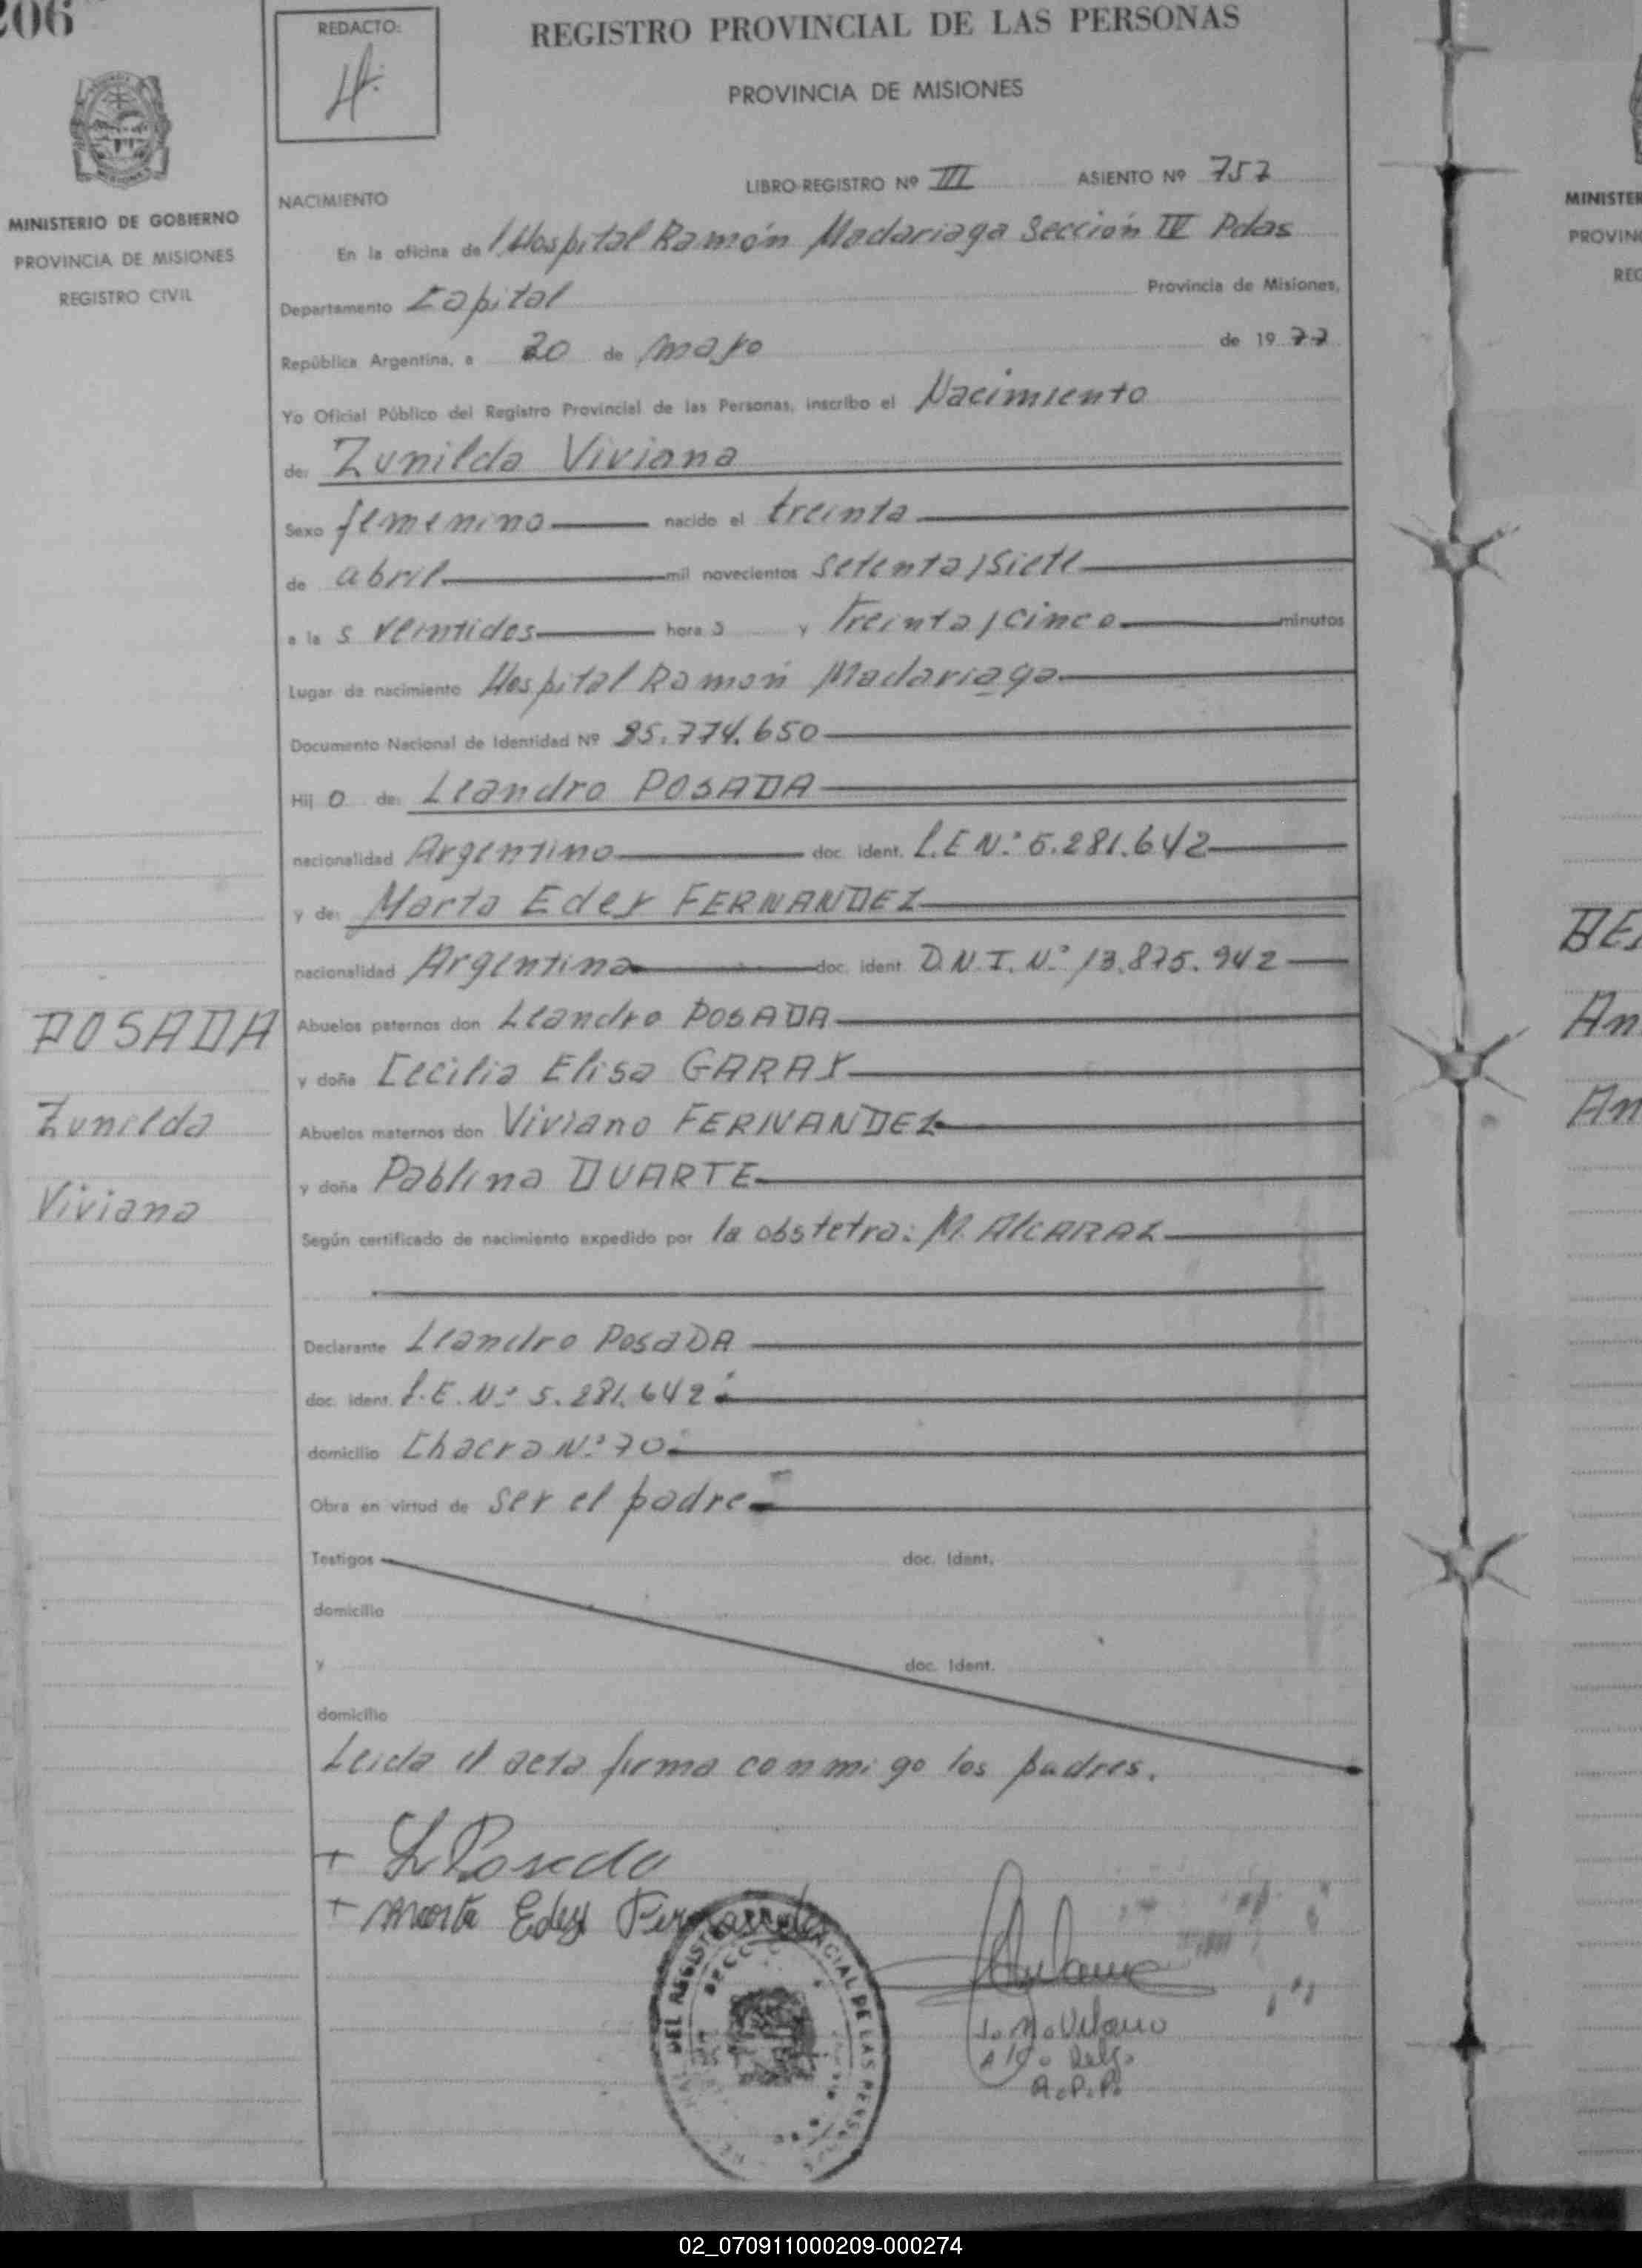 206
REDACTO:
REGISTRO PROVINCIAL DE LAS PERSONAS
PROVINCIA DE MISIONES
MINISTERIO DE GOBIERNO
PROVINCIA DE MISIONES
REGISTRO CIVIL
LIBRO-REGISTRO Nº III ASIENTO Nº 757
NACIMIENTO
En la oficina de l Hospital Ramón Madariaga Sección IV Pdas
Departamento Capital Provincia de Misiones,
República Argentina, a 20 de mayo de 1977
Yo Oficial Público del Registro Provincial de las Personas, inscribo el Nacimiento
de: Zunilda Viviana
Sexo femenino nacido el treinta
de abril mil novecientos setenta y siete
a la s veintidos hora s y treinta y cinco minutos
Lugar de nacimiento Hospital Ramón Madariaga
Documento Nacional de Identidad Nº 25.774.650
Hij o de: Leandro POSADA
nacionalidad Argentino doc. ident. L.E Nº 5.281.642
y de: Marta Edey FERNANDEZ
nacionalidad Argentina doc. ident. D.N.I. Nº 13.875.942
Abuelos paternos don Leandro POSADA
y doña Cecilia Elisa GARAY
Abuelos maternos don Viviano FERNANDEZ
y doña Pablina DUARTE
Según certificado de nacimiento expedido por la obstetra: M. AlCARAZ
Declarante Leandro PosaDA
doc. ident. L.E. Nº 5.281.642
domicilio Chacra Nº 70
Obra en virtud de ser el padre
Testigos doc. Ident.
domicilio
y doc. Ident.
domicilio
Leida el acta firma conmigo los padres.
+ L Posada
+ Marta Edey Fernandez
POSADA
Zunilda
Viviana
DEL REGISTRO PROVINCIAL DE LAS PERSONAS
R.P.P.
MINISTER
PROVIN
REG
An
An
02_070911000209-000274